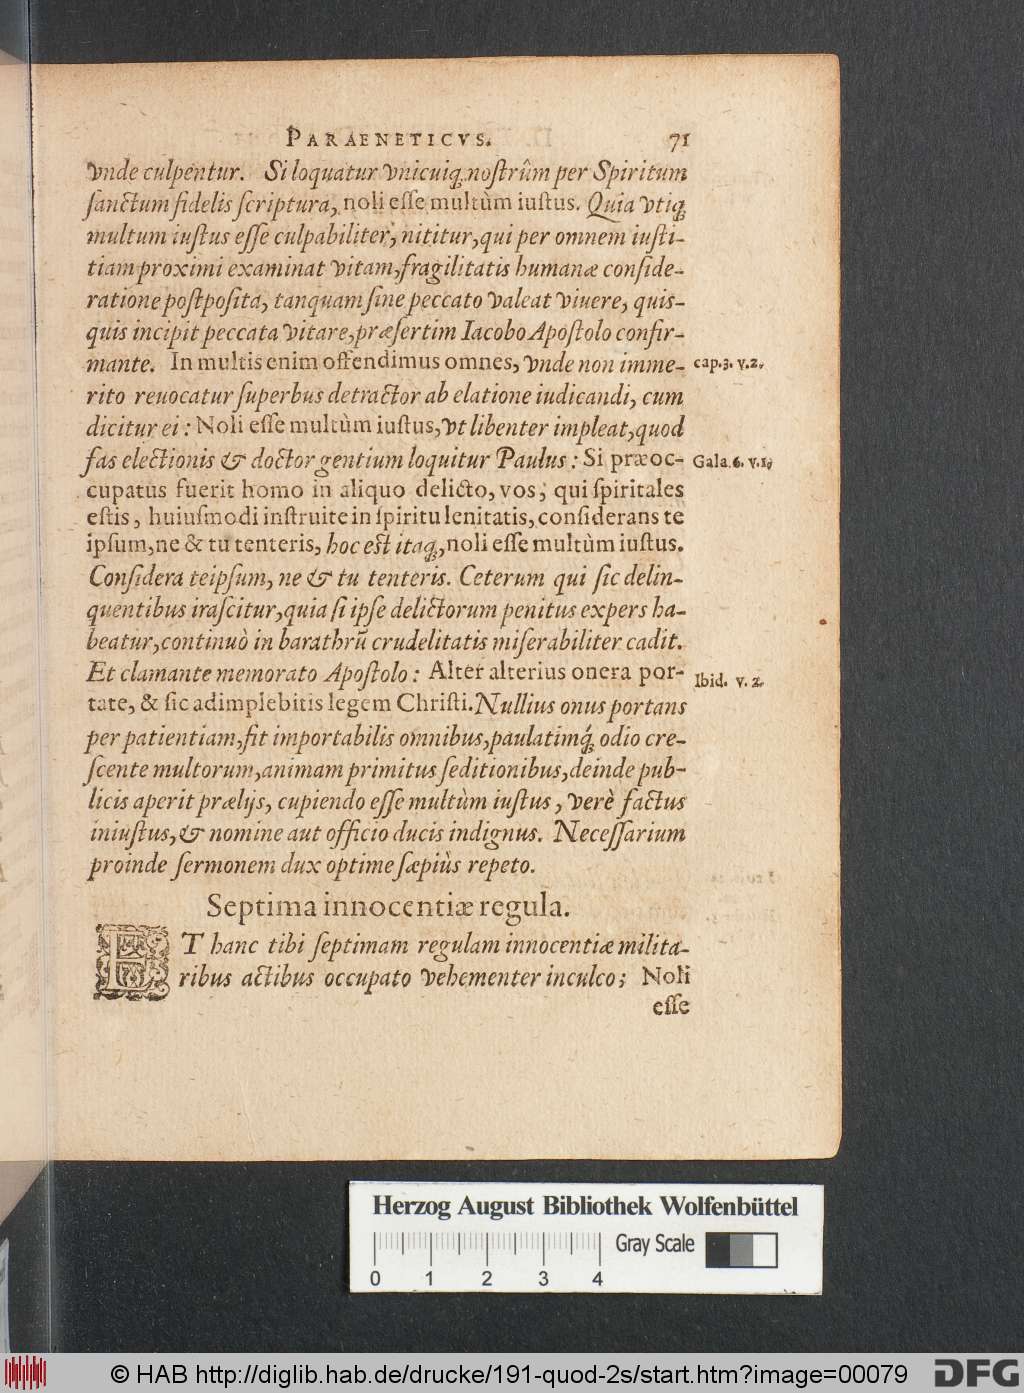 PARAENETICVS. 71
vnde culpentur. Si loquatur vnicuiq́; nostrûm per Spiritum
sanctum fidelis scriptura, noli esse multùm iustus. Quia vtiq́;
multum iustus esse culpabiliter, nititur, qui per omnem iusti-
tiam proximi examinat vitam, fragilitatis humanæ conside-
ratione postposita, tanquam sine peccato valeat viuere, quis-
quis incipit peccata vitare, præsertim Iacobo Apostolo confir-
mante. In multis enim offendimus omnes, vnde non imme- cap.3. v.2.
rito reuocatur superbus detractor ab elatione iudicandi, cum
dicitur ei: Noli esse multùm iustus, vt libenter impleat, quod
fas electionis & doctor gentium loquitur Paulus: Si præoc- Gala.6. v.1.
cupatus fuerit homo in aliquo delicto, vos, qui spiritales
estis, huiusmodi instruite in spiritu lenitatis, considerans te
ipsum, ne & tu tenteris, hoc est itaq́;, noli esse multùm iustus.
Considera teipsum, ne & tu tenteris. Ceterum qui sic delin-
quentibus irascitur, quia si ipse delictorum penitus expers ha-
beatur, continuò in barathrũ crudelitatis miserabiliter cadit.
Et clamante memorato Apostolo: Alter alterius onera por- Ibid. v. 2.
tate, & sic adimplebitis legem Christi. Nullius onus portans
per patientiam, fit importabilis omnibus, paulatimq́; odio cre-
scente multorum, animam primitus seditionibus, deinde pub-
licis aperit prælijs, cupiendo esse multùm iustus, verè factus
iniustus, & nomine aut officio ducis indignus. Necessarium
proinde sermonem dux optime sæpiùs repeto.
Septima innocentiæ regula.
ET hanc tibi septimam regulam innocentiæ milita-
ribus actibus occupato vehementer inculco; Noli
esse
Herzog August Bibliothek Wolfenbüttel
Gray Scale
0 1 2 3 4
© HAB http://diglib.hab.de/drucke/191-quod-2s/start.htm?image=00079
DFG